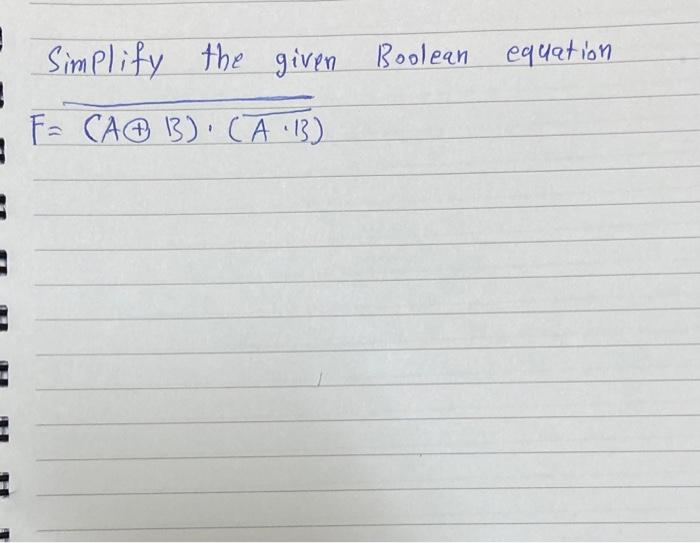 Simplify the given Boolean equation
F= \overline{(A⊕B)·(\overline{A·B})}